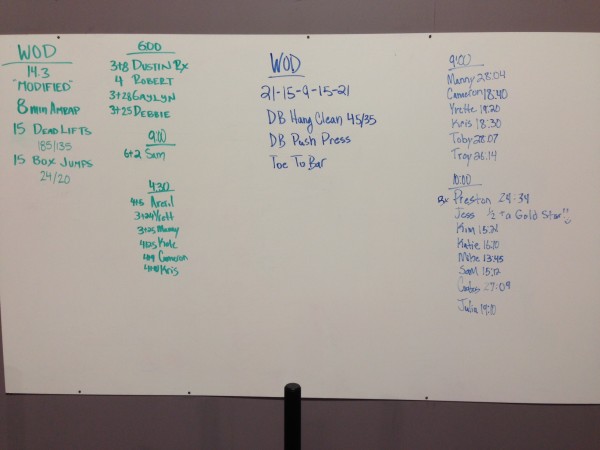 WOD
14.3
"MODIFIED"
8 min AMRAP
15 DEAD LIFTS
185/135
15 BOX JUMPS
24/20
6:00
3+8 DUSTIN Rx
4 ROBERT
3+28 GAYLYN
3+25 DEBBIE
9:00
6+2 Sam
4:30
3+24 Yvett
3+25 Manny
4+25 Kyle
4+9 Cameron
Kris
WOD
21-15-9-15-21
DB Hang Clean 45/35
DB Push Press
Toe To Bar
9:00
Manny 28:04
Cameron 18:40
Yvette 19:20
Kris 18:30
Toby 28:07
Troy 26:14
10:00
Rx Preston 29:39
Jess 1/2 + a Gold Star!!
Kim 15:21
Katie 16:10
Mike 13:45
Sam 15:12
27:09
Julia 19:10